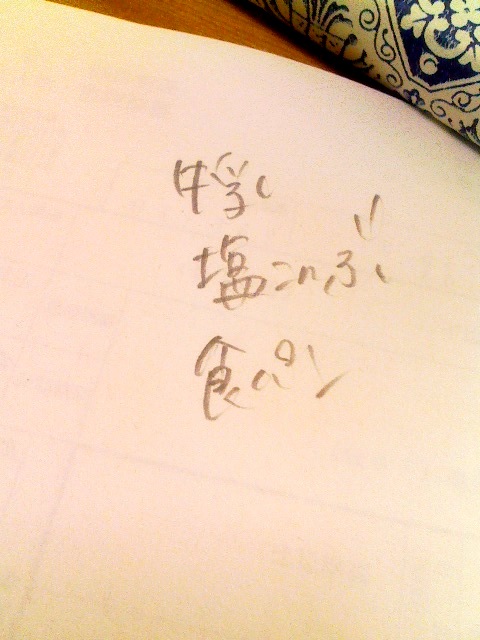 牛乳
塩こんぶ
食パン